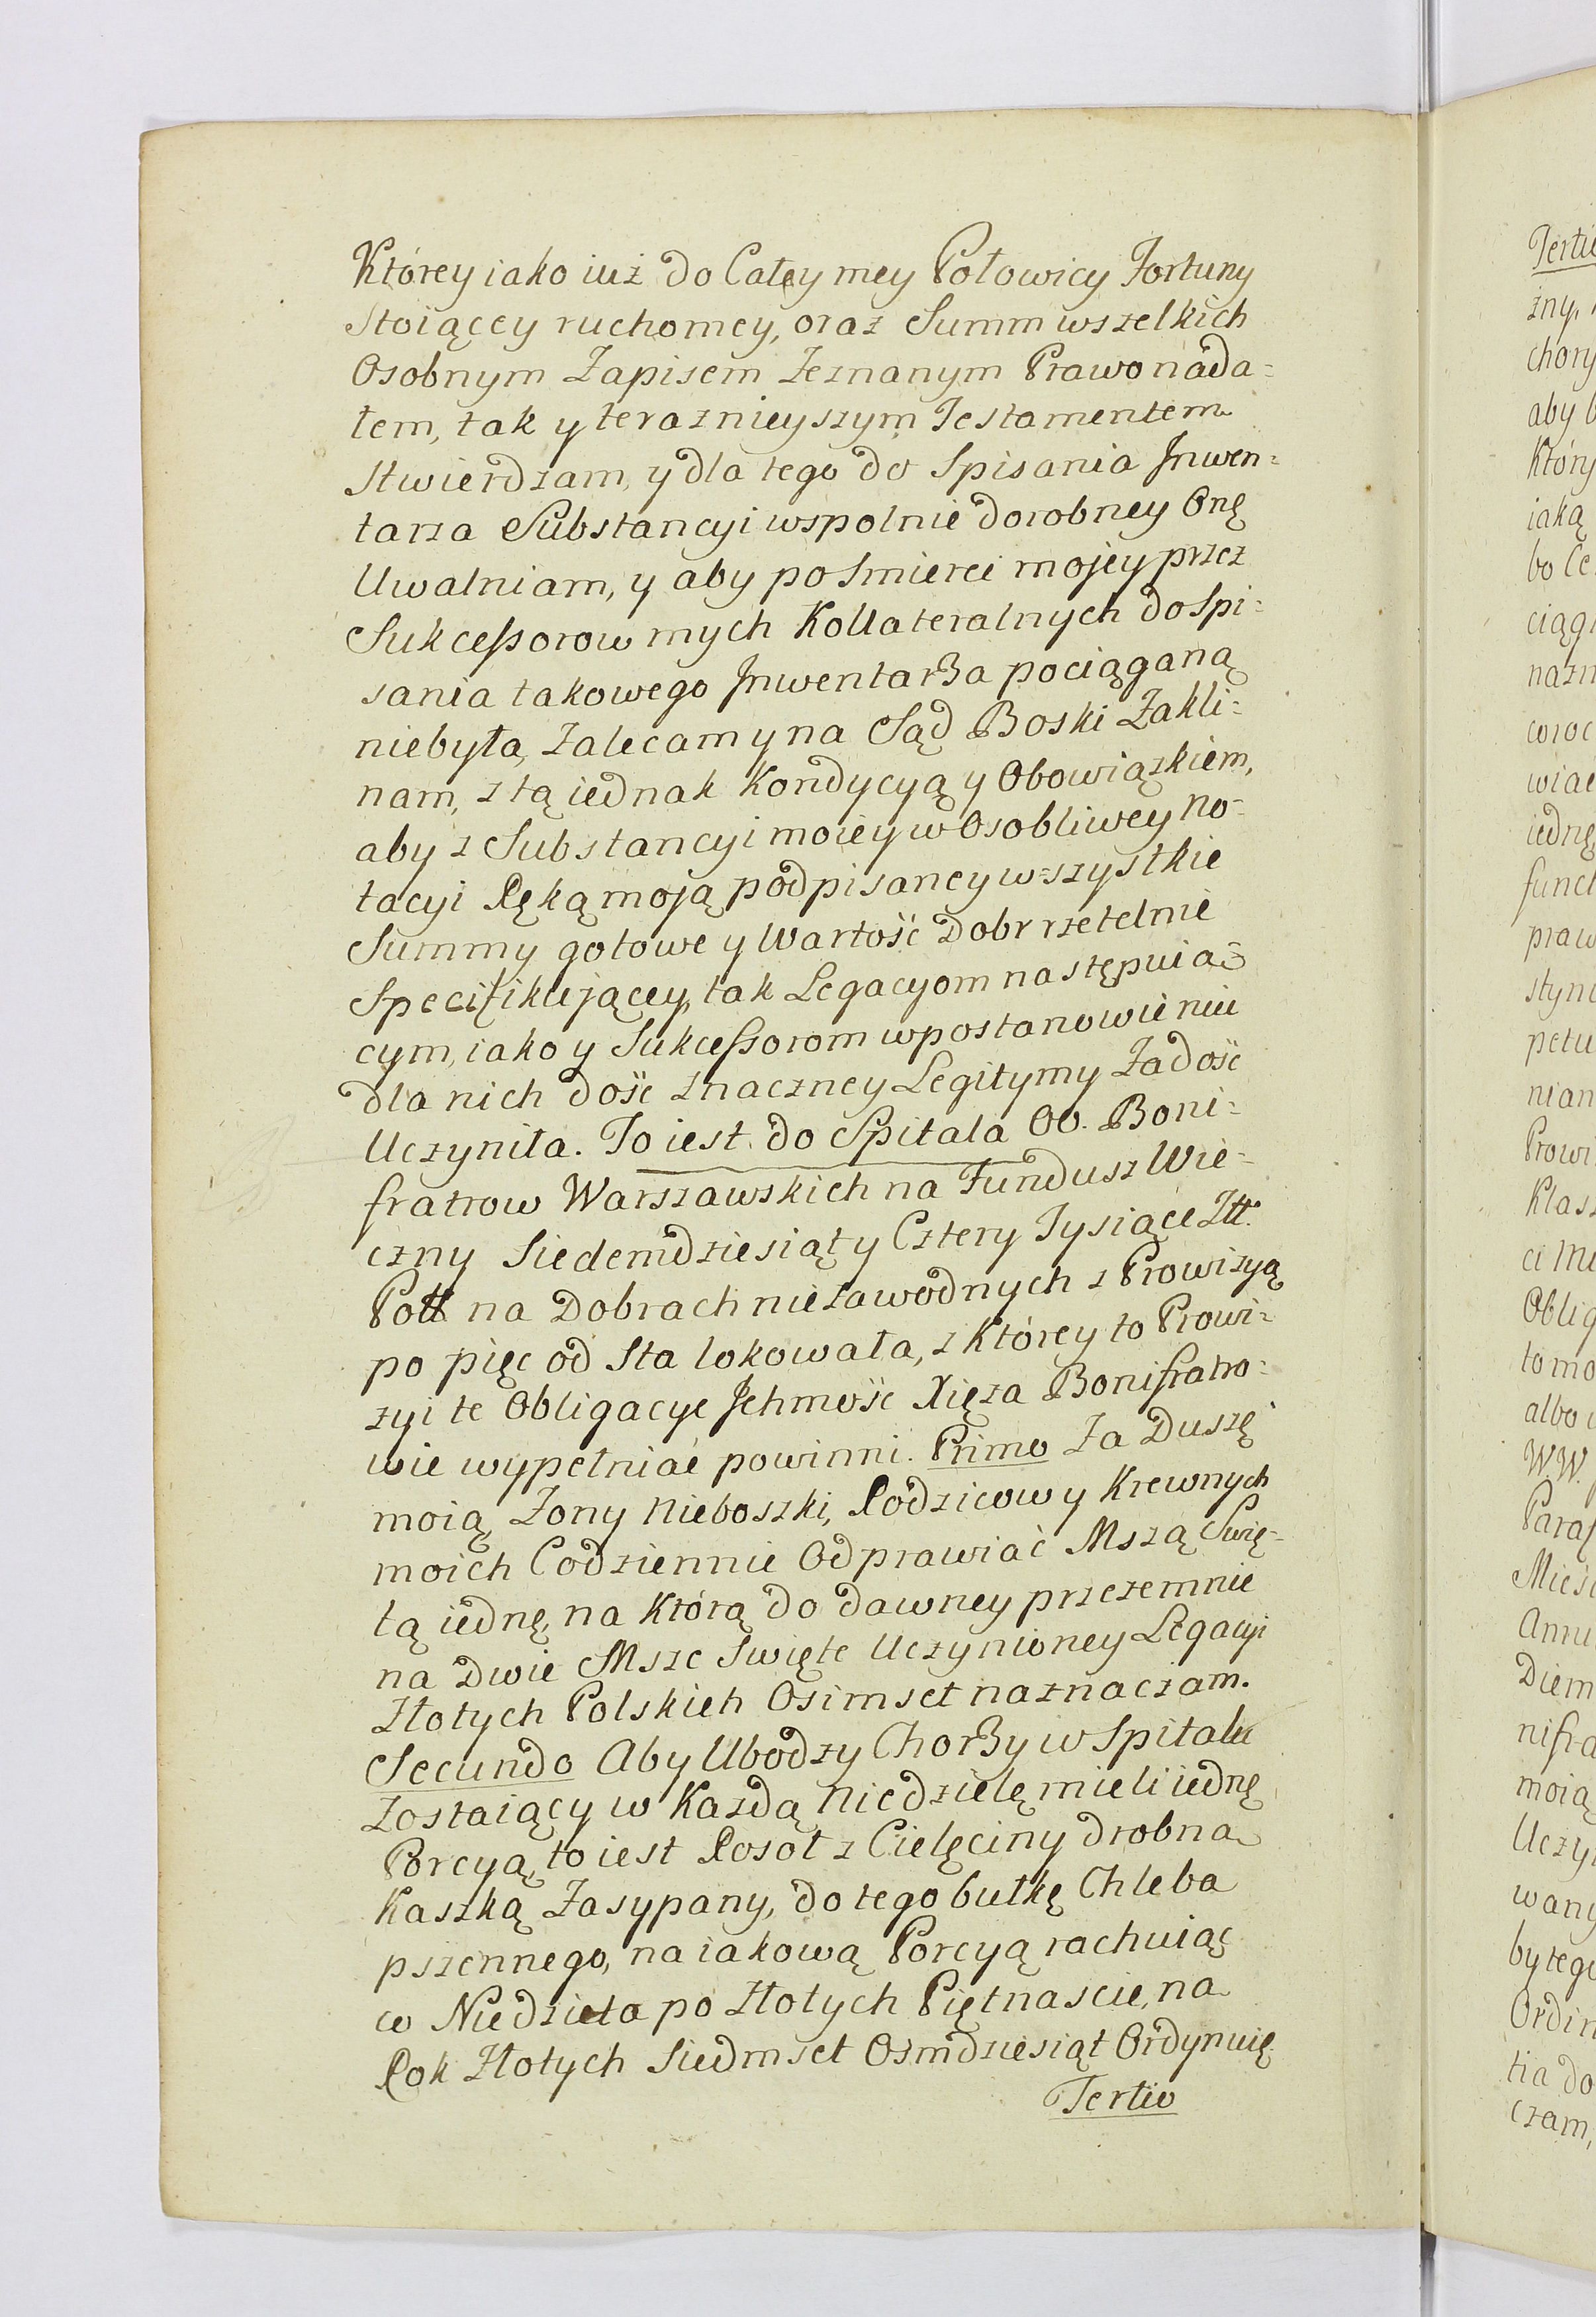 Którey iako iuż do Całey mey Połowicy Fortuny
Stoiącey ruchomey, oraz Summ wszelkich
Osobnym Zapisem Zeznanym Prawo nada=
łem, tak y teraznieyszym Testamentem
Stwierdzam, y dla tego do Spisania Jnwen=
tarza Substancyi wspolnie dorobney Onę
Uwalniam, y aby po Smierci mojey przez
Sukcessorow mych Kollateralnych do Spi=
sania takowego Jnwentarza pociąganą
niebyła, Zalecam y na Sąd Boski Zakli=
nam, z tą iednak Kondycyą y Obowiązkiem,
aby z Substancyi moiey w Osobliwey No=
tacyi Ręką moją podpisaney wszystkie
Summy gotowe y Wartość Dobr rzetelnie
Specifikującey, tak Legacyom następuią=
cym, iako y Sukcessorom w postanowieniu
dla nich dość znaczney Legitymy Zadość
Uczyniła. To iest do Spitala OO. Boni=
fratrow Warszawskich na Fundusz Wie=
czny Siedemdziesiąt y Cztery Tysiące Złł.
Poll na Dobrach niezawodnych z Prowizyą
po pięc od Sta lokowała, z Którey to Prowi=
zyi te Obligacye Jchmość Xięza Bonifratro=
wie wypełniać powinni. Primo Za Duszę
moią, Zony Nieboszki, Rodzicow y Krewnych
moich Codziennie Odprawiać Mszą Swię=
tą iednę, na Którą do dawney przezemnie
na Dwie Msze Swięte Uczynioney Legacyi
Złotych Polskich Osimset naznaczam.
Secundo Aby Ubodzy Chorzy w Spitalu
Zostaiący w Kazdą Niedzielę mieli iednę
Porcyą, to iest Rosoł z Cielęciny drobna
Kaszką Zasypany, do tego bułkę Chleba
pszennego, na iakową Porcyą rachuiąc
w Niedziela po Złotych Piętnascie, na
Rok Złotych Siedmset Osmdziesiąt Ordynuię.
Tertio